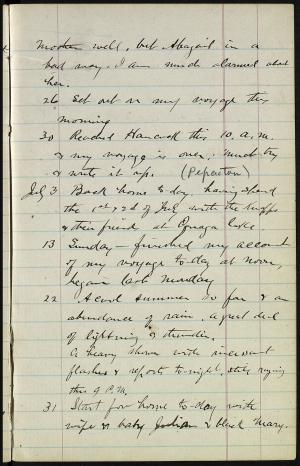 Mother well, but Abigail in a
bad way. I am much alarmed about
her.
26 Set out on my voyage this
morning
30 Reached Hancock this 10, a.m.
& my voyage is over. Must try
& write it up. (Pepacton)
July 3 Back home to-day, having spent
the 1st & 2d of July with the
& their friend at Lake.
13 Sunday — finished my account
of my voyage to-day at noon,
began last Monday
22 A cool summer so far & an
abundance of rain. A great deal
of lightning & thunder.
A heavy shower with incessant
flashes & reports to-night, still raging
this 9 P.M.
31 Start for home to-day with
wife & baby Julian & black Mary.